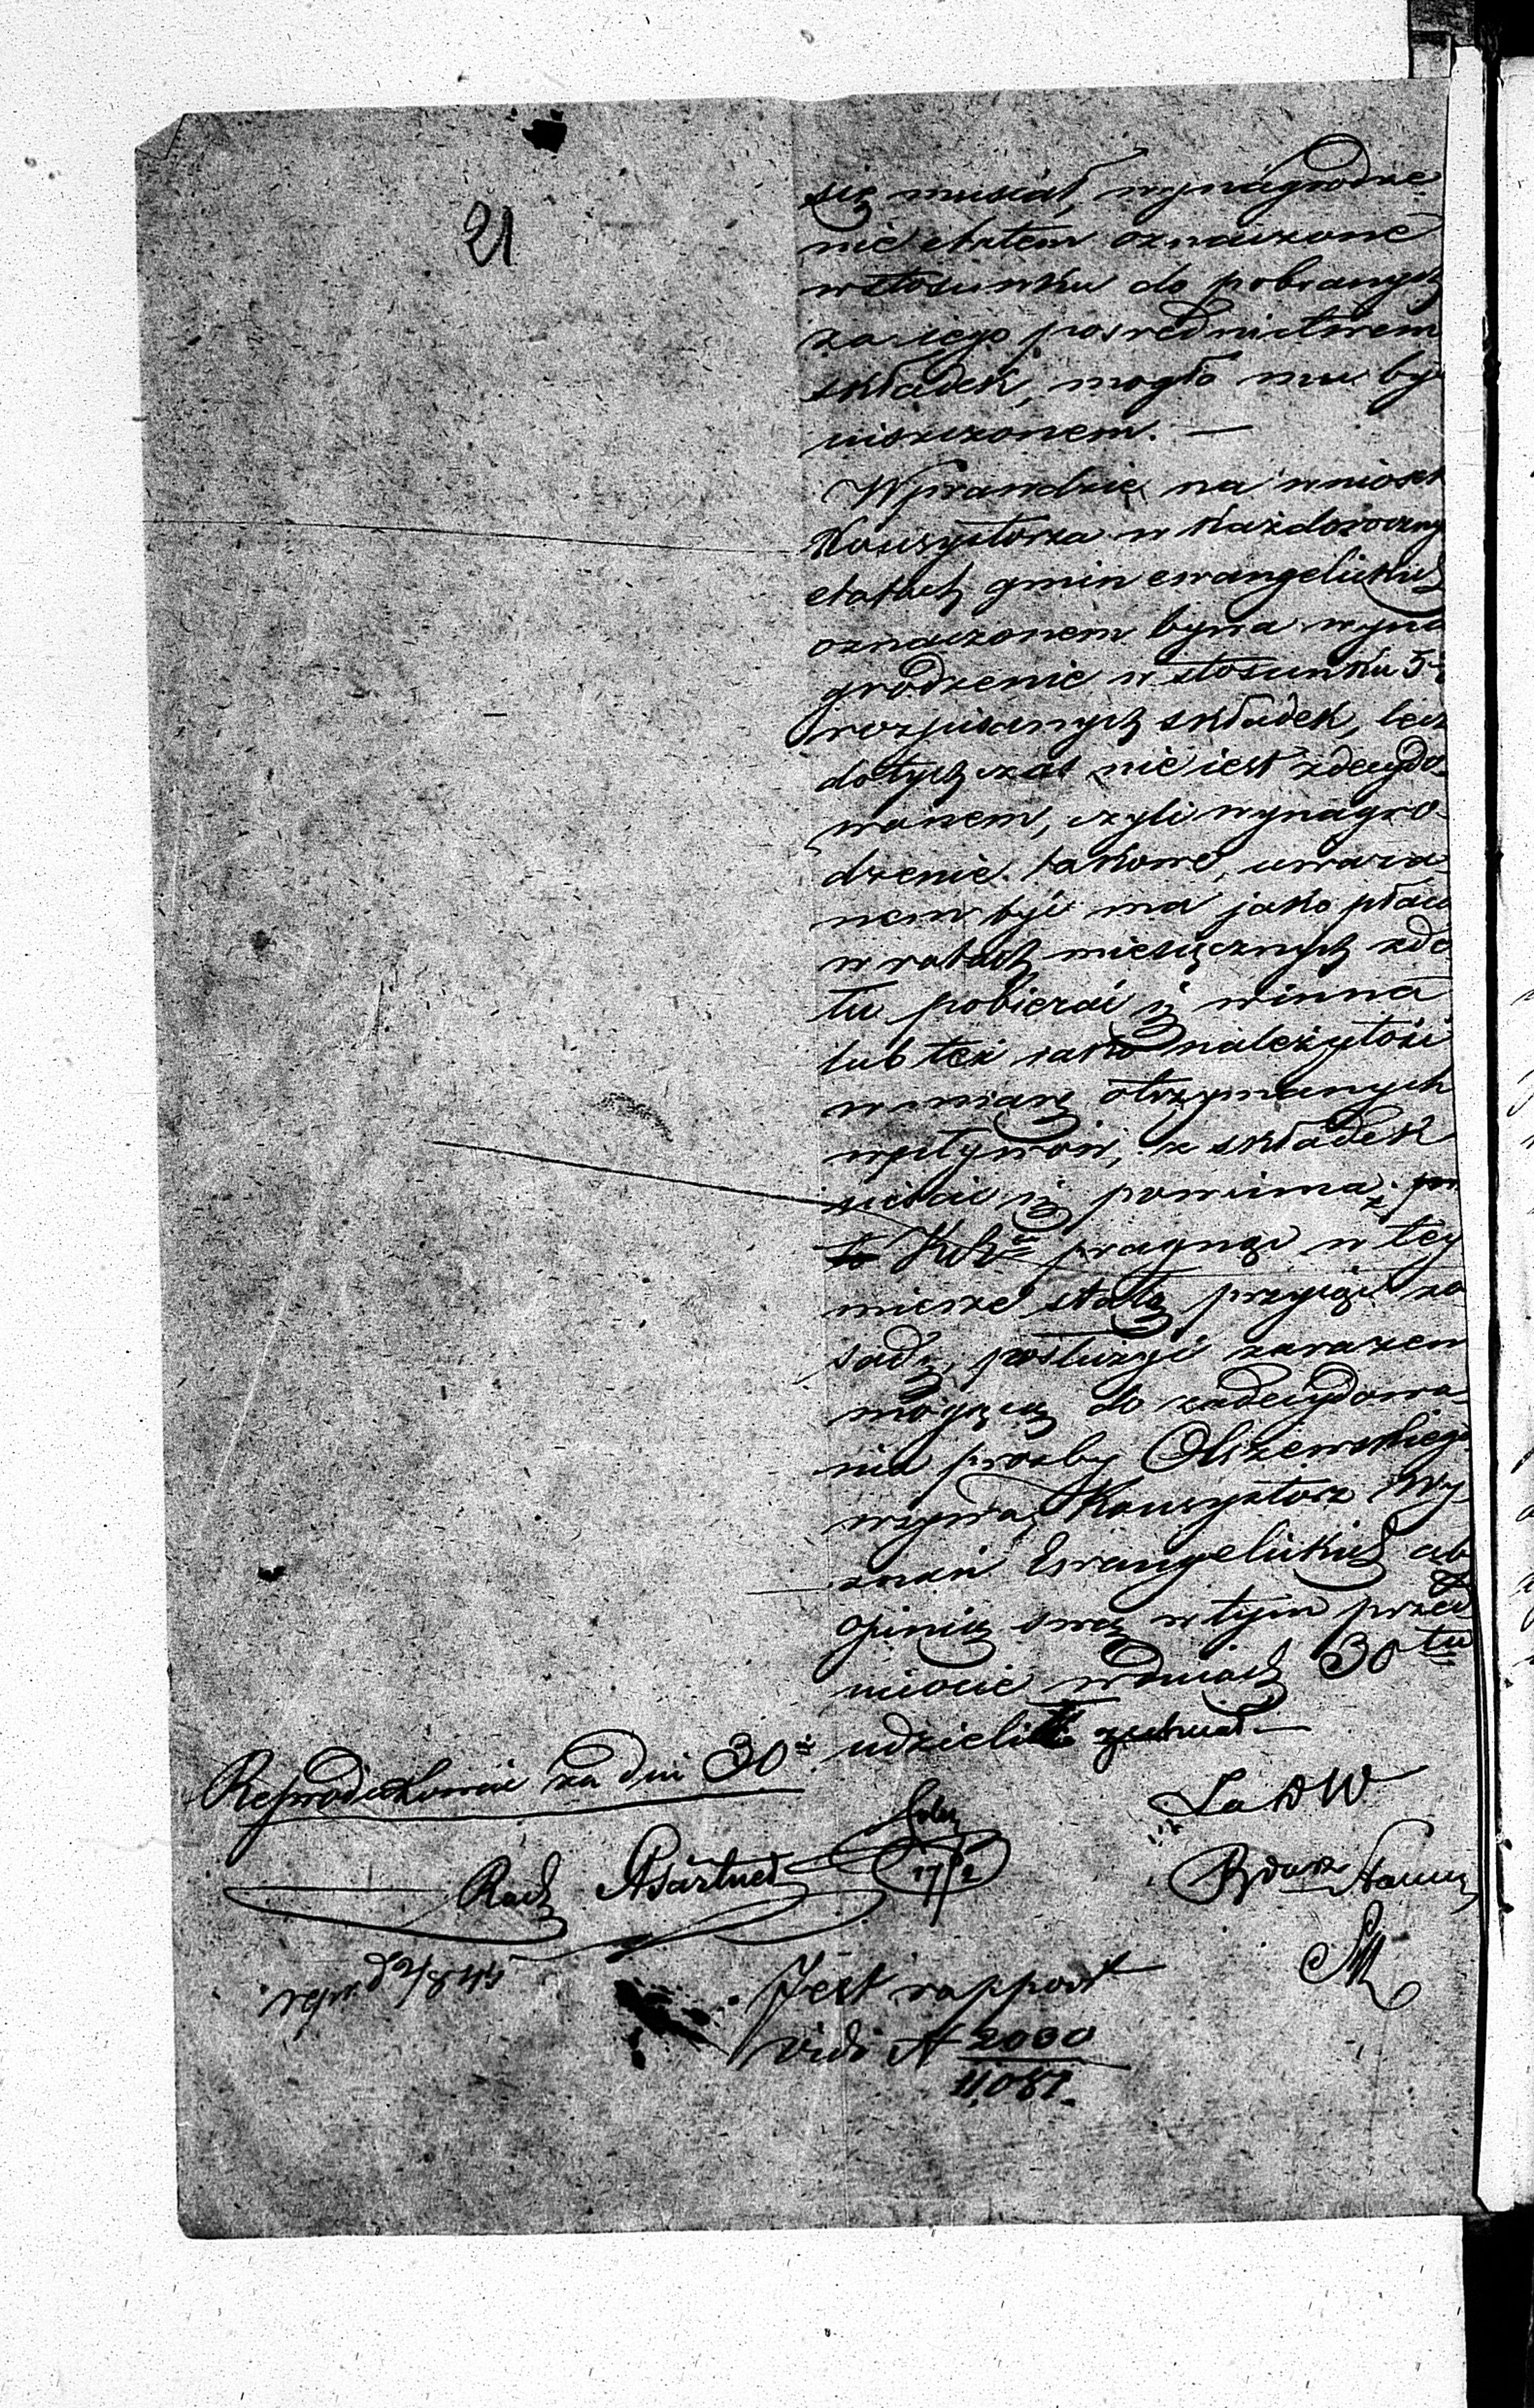 21
się musiał, wynagrodze
nie etatem oznaczone
w stosunku do pobranych
za iego posrednictwem
składek, mogło mu by
uiszczonem. —
Wprawdzie na wniosek
Konsystorza w każdoroczny
etatach gmin ewangelickich
oznaczonem bywa wyna
grodzenie w stosunku 5
rozpisanych składek, lecz
dotychczas nie iest zdecydo-
wanem, czyli wynagro-
dzenie takowe, uważa
nem być ma jako płaca
w ratach miesięcznych zdo
tu pobierać się winna
lub też jako należytość
w miarę otrzymanych
wpływów, z składek
uiścić się powinna;
pragnąc w tey
mierze stałą przyjąć za
sadę, posłużyć zarazem
mogącą do zadecydowa-
nia prozby Olszewskiego
wzywa Konsystorz Wy-
znań Ewangelickich ab
opinią swą w tym przed
miocie w dniach 30 tu
udzielił zechciał. —
Reprodukowac za dni 30
Rad
17/2
Jest rapport
vidi N 2030
11081.